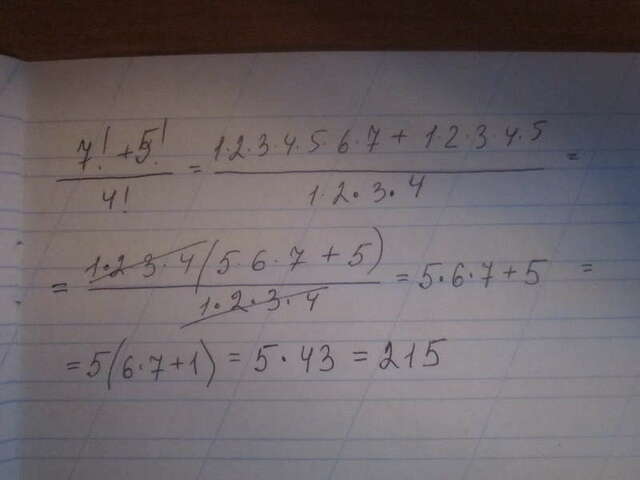 7! + 5! / 4! = 1·2·3·4·5·6·7 + 1·2·3·4·5 / 1·2·3·4 =
= 1·2·3·4(5·6·7 + 5) / 1·2·3·4 = 5·6·7 + 5 =
= 5(6·7+1) = 5·43 = 215